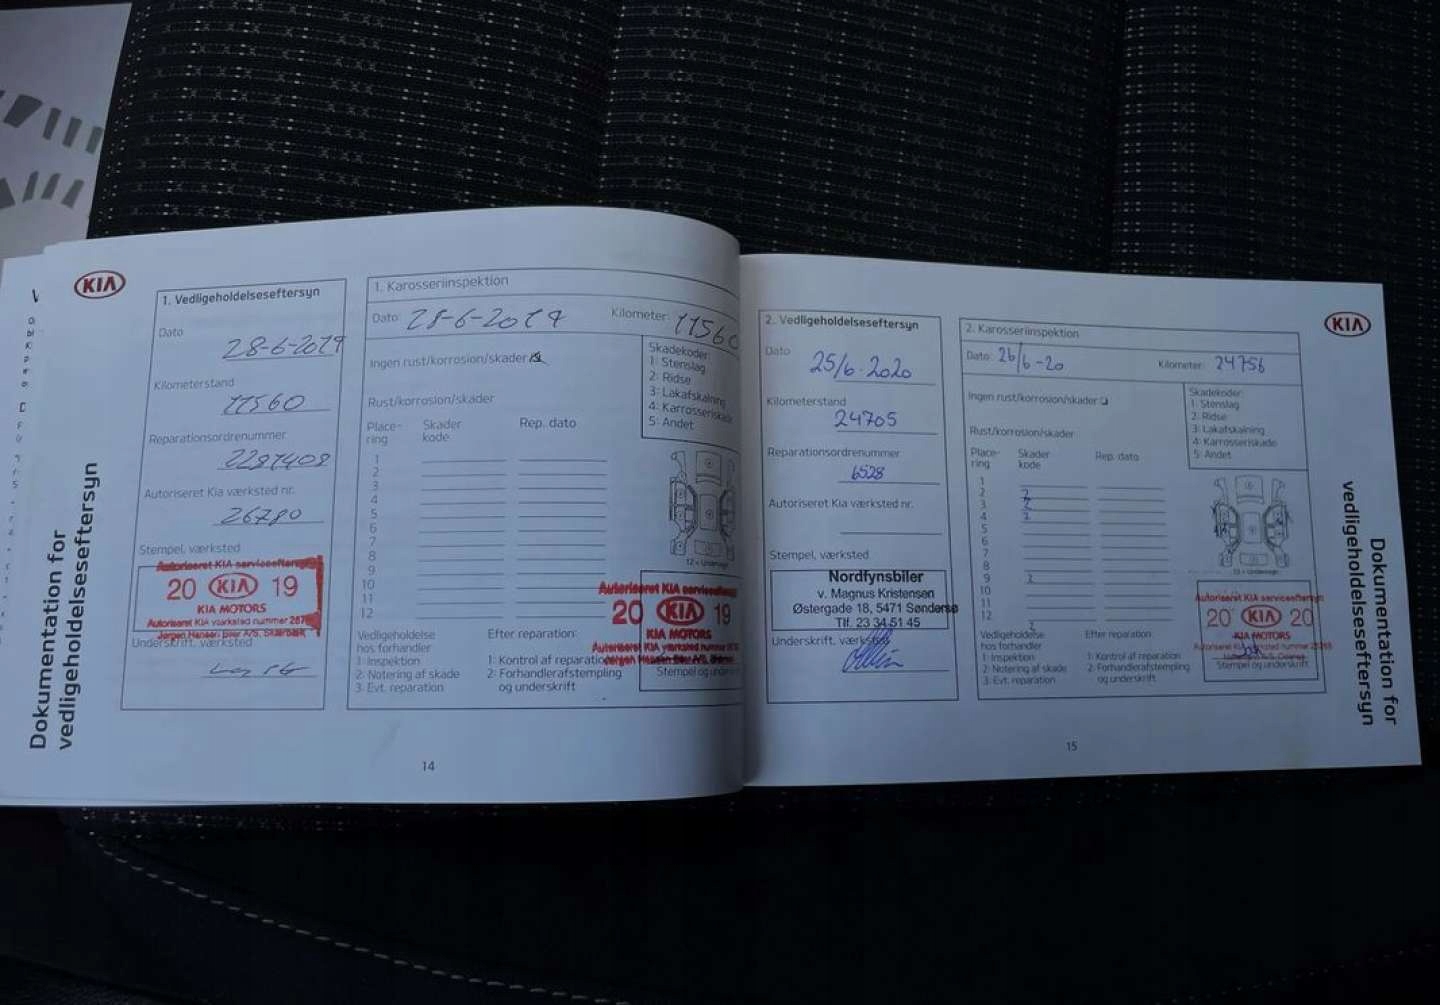 KIA
Dokumentation for
vedligeholdelseseftersyn
1. Vedligeholdelseseftersyn
Dato
28-6-2019
Kilometerstand
11560
Reparationsordrenummer
Autoriseret Kia værksted nr.
26780
Stempel, værksted
Autoriseret KIA serviceeftersyn
20 KIA 19
KIA MOTORS
Autoriseret KIA værksted nummer
Jørgen Hansen Biler A/S, Skærbæk
Underskrift, værksted
1. Karosseriinspektion
Dato: 28-6-2019
Kilometer: 11560
Ingen rust/korrosion/skader
Rust/korrosion/skader
Place-
ring
Skader
kode
Rep. dato
1
2
3
4
5
6
7
8
9
10
11
12
Skadekoder:
1: Stenslag
2: Ridse
3: Lakafskalning
4: Karrosseriskade
5: Andet
12 = Undervogn
Vedligeholdelse
hos forhandler
1: Inspektion
2: Notering af skade
3. Evt. reparation
Efter reparation:
1: Kontrol af reparation
2: Forhandlerafstempling
og underskrift
Autoriseret KIA serviceeftersyn
20 KIA 19
KIA MOTORS
Autoriseret KIA værksted nummer
Stempel og
14
2. Vedligeholdelseseftersyn
Dato
25/6-2020
Kilometerstand
24705
Reparationsordrenummer
6528
Autoriseret Kia værksted nr.
Stempel, værksted
Nordfynsbiler
v. Magnus Kristensen
Østergade 18, 5471 Søndersø
Tlf. 23 34 51 45
Underskrift, værksted
2. Karosseriinspektion
Dato: 26/6-20
Kilometer: 24756
Ingen rust/korrosion/skader
Rust/korrosion/skader
Place-
ring
Skader
kode
Rep. dato
1
2 2
3 2
4 2
5
6
7
8
9 2
10
11
12 2
Skadekoder:
1: Stenslag
2: Ridse
3: Lakafskalning
4: Karrosseriskade
5: Andet
12 = Undervogn
Vedligeholdelse
hos forhandler
1: Inspektion
2: Notering af skade
3. Evt. reparation
Efter reparation:
1: Kontrol af reparation
2: Forhandlerafstempling
og underskrift
Autoriseret KIA serviceeftersyn
20 KIA 20
KIA MOTORS
Autoriseret KIA værksted nummer
Stempel og underskrift
15
KIA
Dokumentation for
vedligeholdelseseftersyn